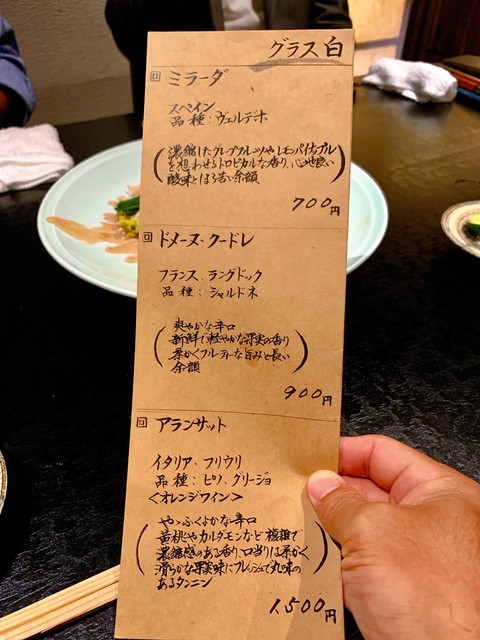 グラス白
回 ミラーダ
スペイン
品種:ヴェルデホ
濃縮したグレープフルーツやレモンパイナップル
を想わせるトロピカルな香り、心地良い
酸味とほろ苦い余韻
700円
回 ドメーヌ・クードレ
フランス、ラングドック
品種:シャルドネ
爽やかな辛口
新鮮で軽やかな果実の香り
柔かくフルーティな旨みと長い
余韻
900円
回 アランサット
イタリア、フリウリ
品種:ピノ、グリージョ
<オレンジワイン>
やゝふくよかな辛口
黄桃やカルダモンなど複雑で
濃縮感のある香り、口当りは柔かく
滑らかな果実味にフレッシュで丸味の
あるタンニン
1,500円